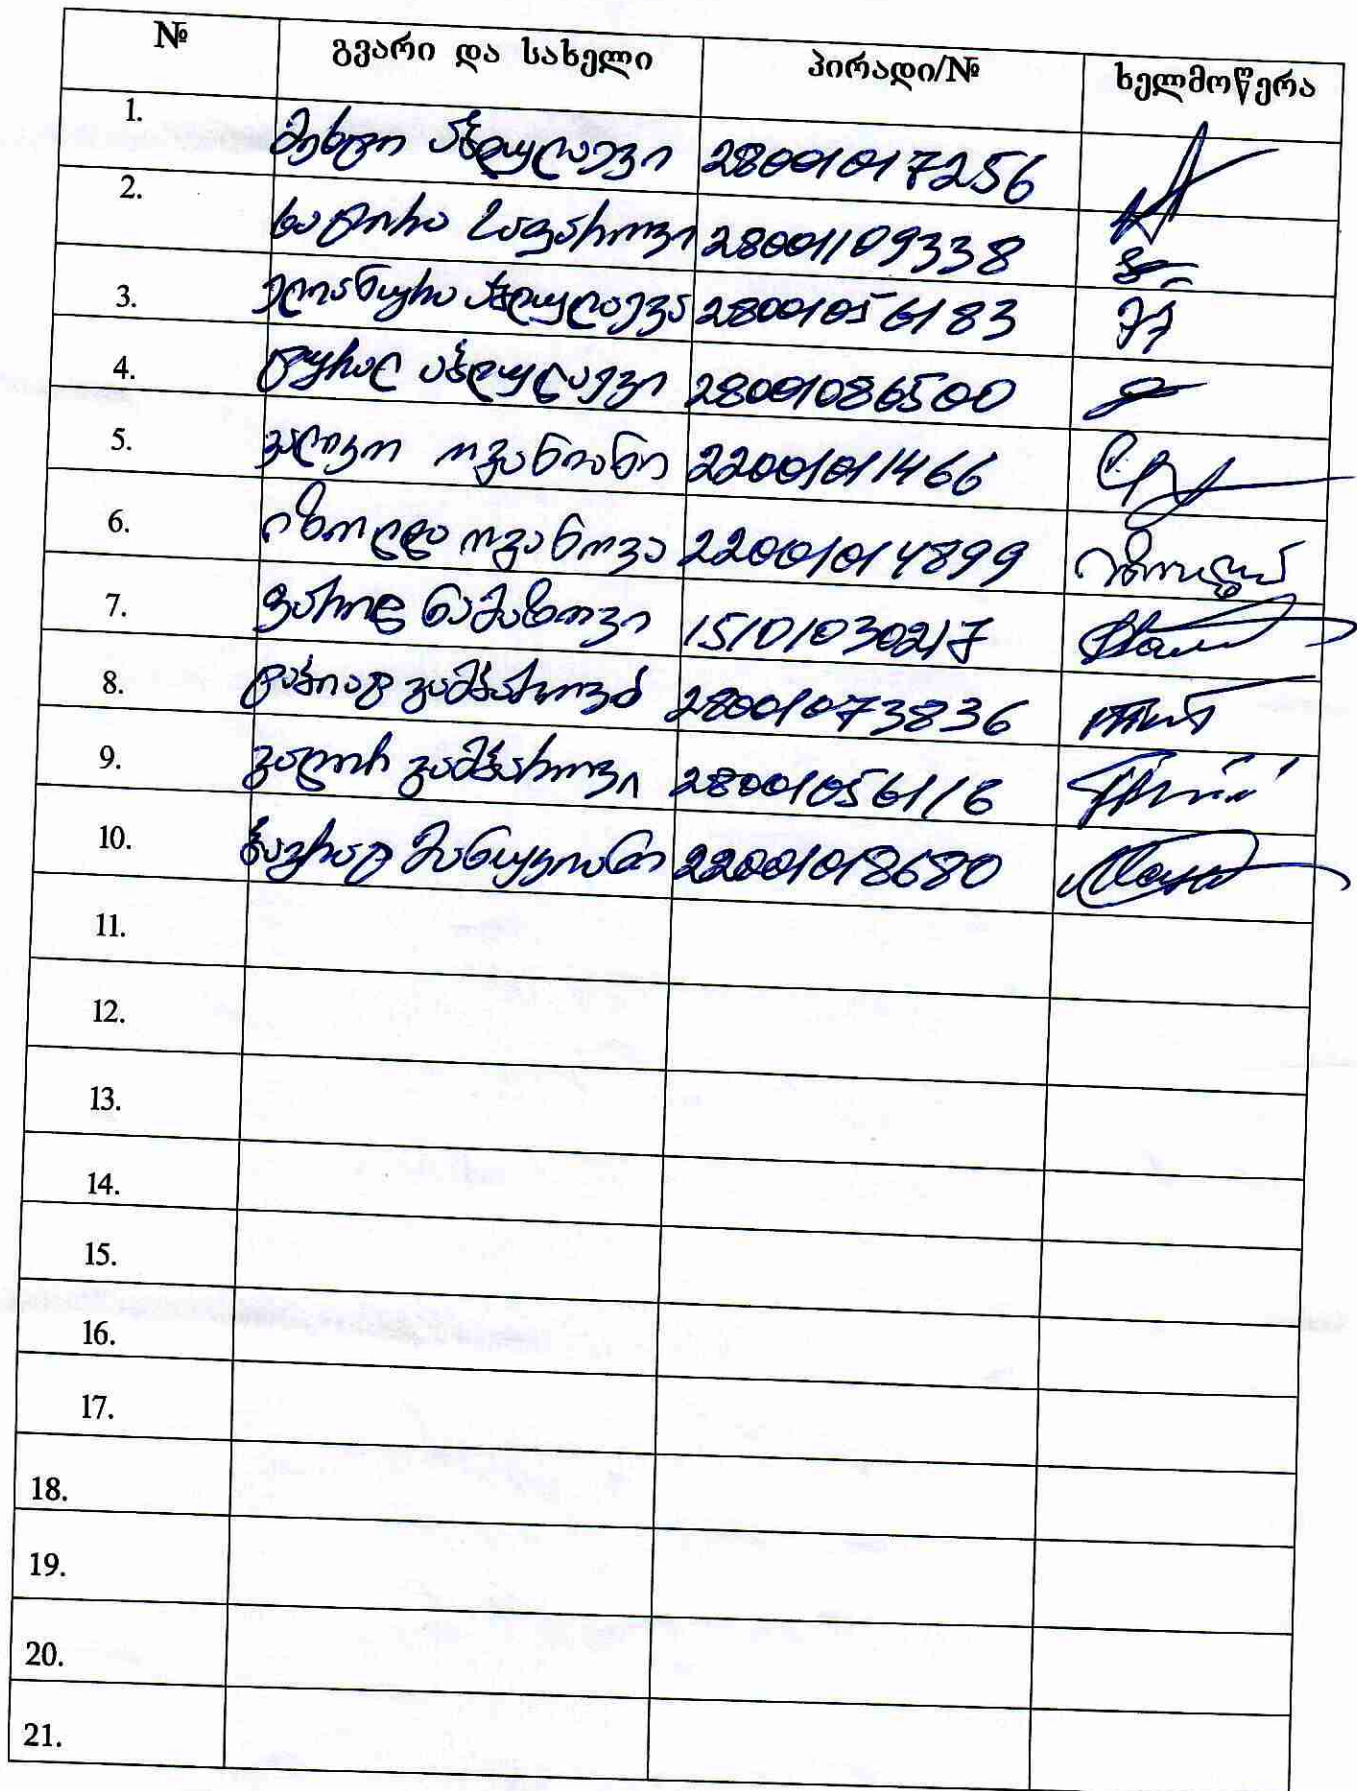 № გვარი და სახელი პირადი/№ ხელმოწერა
1. მეხტი აბდულაევი 28001017256
2. ხატირა საფაროვი 28001109338
3. ელიანურა აბდულაევა 28001056183
4. ტურალ აბდულაევი 28001086500
5. ვალიკო ოგანიანი 22001011466
6. იზოლდა ოგანოვა 22001014899
7. ფარიდ ნამაზოვი 15101030217
8. 28001073836
9. ვალერ გამბაროვი 28001056116
10. ბაგრატ მანუკიანი 22001018680
11.
12.
13.
14.
15.
16.
17.
18.
19.
20.
21.